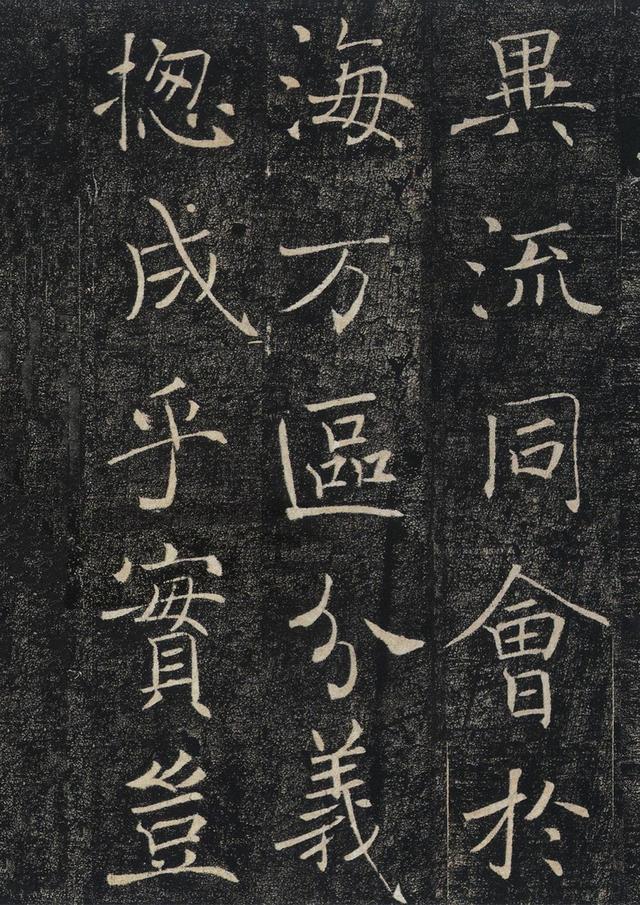 異流同會於
海万區分義
揔成乎實豈